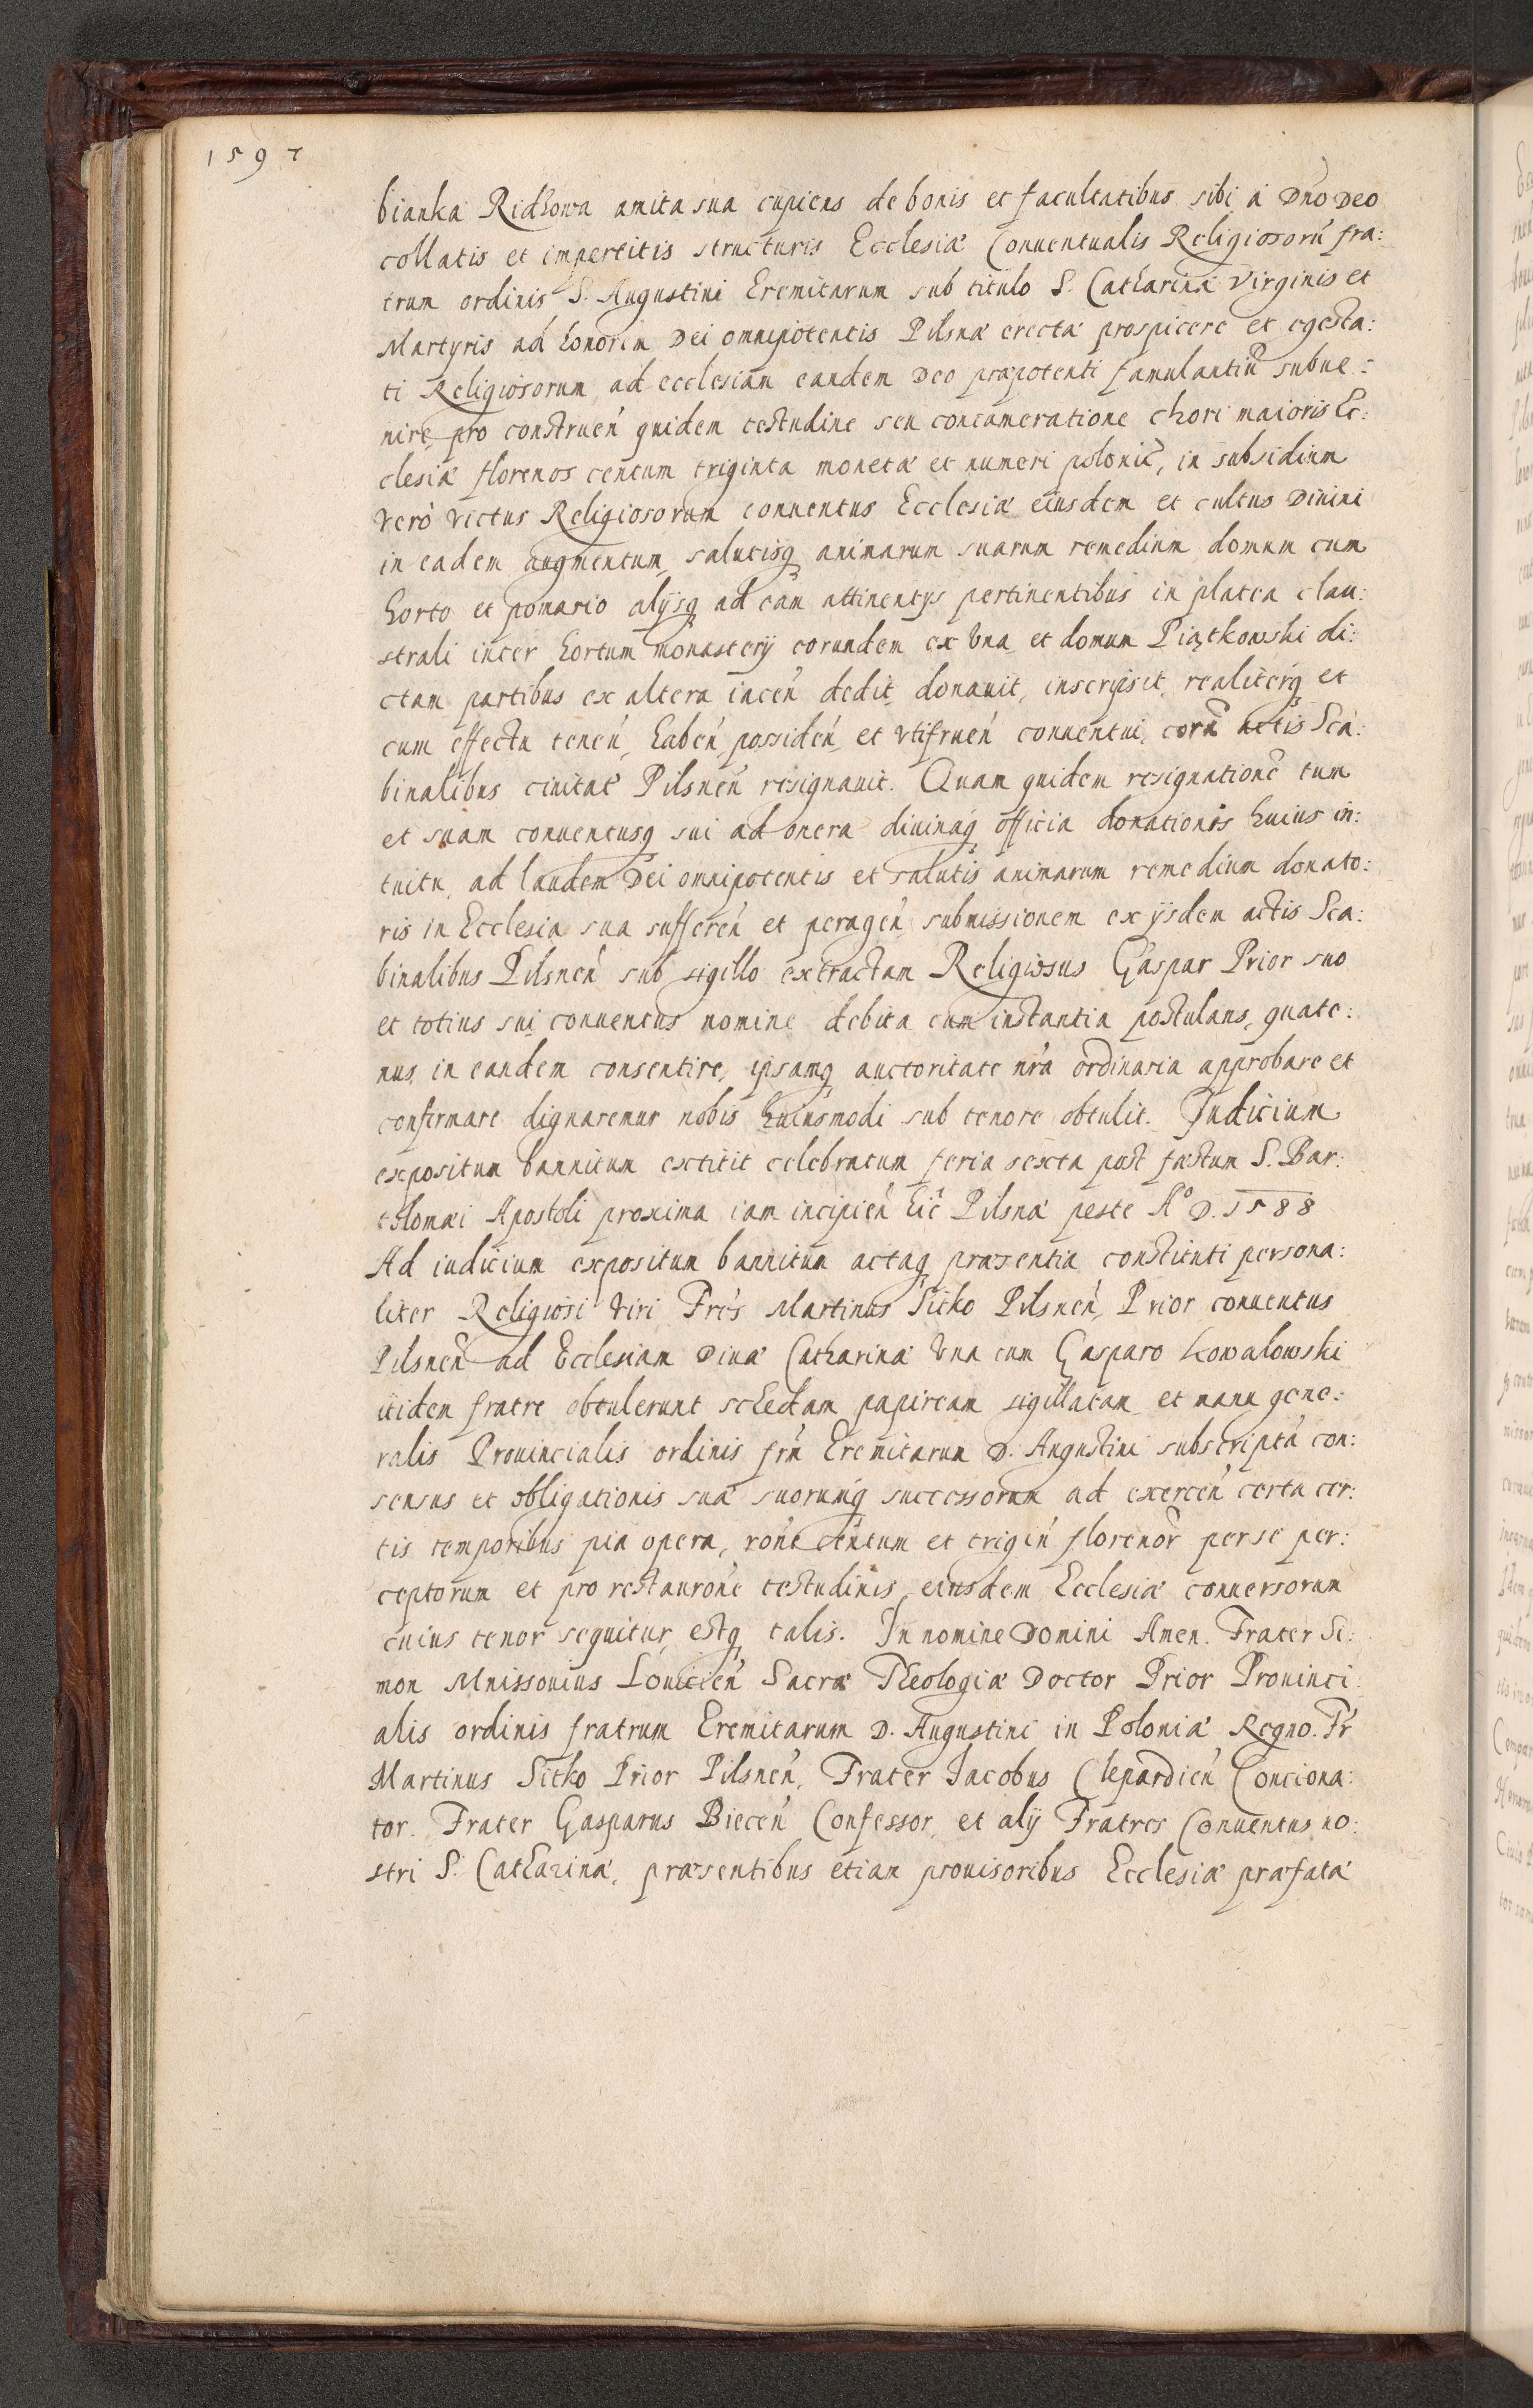 1597
bianka Ridzowa amita sua cupiens de bonis et facultatibus sibi à Dno Deo
collatis et impertitis structuris Ecclesiæ Conuentualis Religiosorũ fra:
trum ordinis S. Augustini Eremitarum sub titulo S. Catharinæ Virginis et
Martyris ad honorem Dei omnipotentis Pilsnæ erectæ prospicere et egesta:
ti Religiosorum ad ecclesiam eandem Deo præpotenti famulantiũ subue:
nire, pro construeñ quidem testudine seu concameratione chori maioris Ec:
clesiæ florenos centum triginta monetæ et numeri polonic̃, in subsidium
verò victus Religiosorum conuentus Ecclesiæ eiusdem et cultus Diuini
in eadem augmentum, salutisq animarum suarum remedium domum cum
horto et pomario alijsq ad eam attinentijs pertinentibus in platea clau:
strali inter hortum monasterij eorundem ex vna et domum Piątkowski di:
ctam partibus ex altera iaceñ dedit, donauit, inscripsit, realiterq et
cum effectu teneñ, habeñ, possideñ, et vtifrueñ conuentui, corã actis Sca:
binalibus ciuitat̃ Pilsneñ resignauit. Quam quidem resignationẽ tum
et suam conuentusq sui ad onera diuinaq officia donationis huius in:
tuitu, ad laudem Dei omnipotentis et salutis animarum remedium donato:
ris in Ecclesia sua suffereñ et perageñ submissionem ex ijsdem actis Sca:
binalibus Pilsneñ sub sigillo extractam Religiosus Gaspar Prior suo
et totius sui conuentus nomine debita cum instantia postulans, quate:
nus in eandem consentire, ipsamq auctoritate nr̃a ordinaria approbare et
confirmare dignaremur nobis huiusmodi sub tenore obtulit. Iudicium
expositum bannitum extitit celebratum feria sexta post fæstum S. Bar:
tolomæi Apostoli proxima iam incipieñ hic Pilsnæ peste A° D. 1588
Ad iudicium expositum bannitum actaq præsentia constituti persona:
liter Religiosi viri Fr̃es Martinus Sitko Pilsneñ, Prior conuentus
Pilsneñ ad Ecclesiam Diuæ Catharinæ vna cum Gasparo Kowalowski
itidem fratre obtulerunt schedam papiream sigillatam et manu gene:
ralis Prouincialis ordinis frm̃ Eremitarum D. Augustini subscriptã con:
sensus et obligationis suæ suorumq successorum ad exerceñ certa cer:
tis temporibus pia opera, ron̉e centum et trigiñ florenor̃ per se per:
ceptorum et pro restauron̉e testudinis eiusdem Ecclesiæ conuersorum
cuius tenor sequitur estq talis. In nomine Domini Amen. Frater Si:
mon Mnissouius Louicieñ Sacræ Theologiæ Doctor Prior Prouinci:
alis ordinis fratrum Eremitarum D. Augustini in Poloniæ Regno. Fr̃
Martinus Sitko Prior Pilsneñ, Frater Iacobus Clepardieñ Conciona:
tor. Frater Gasparus Bieceñ Confessor, et alij Fratres Conuentus no:
stri S. Catharinæ, præsentibus etiam prouisoribus Ecclesiæ præfatæ